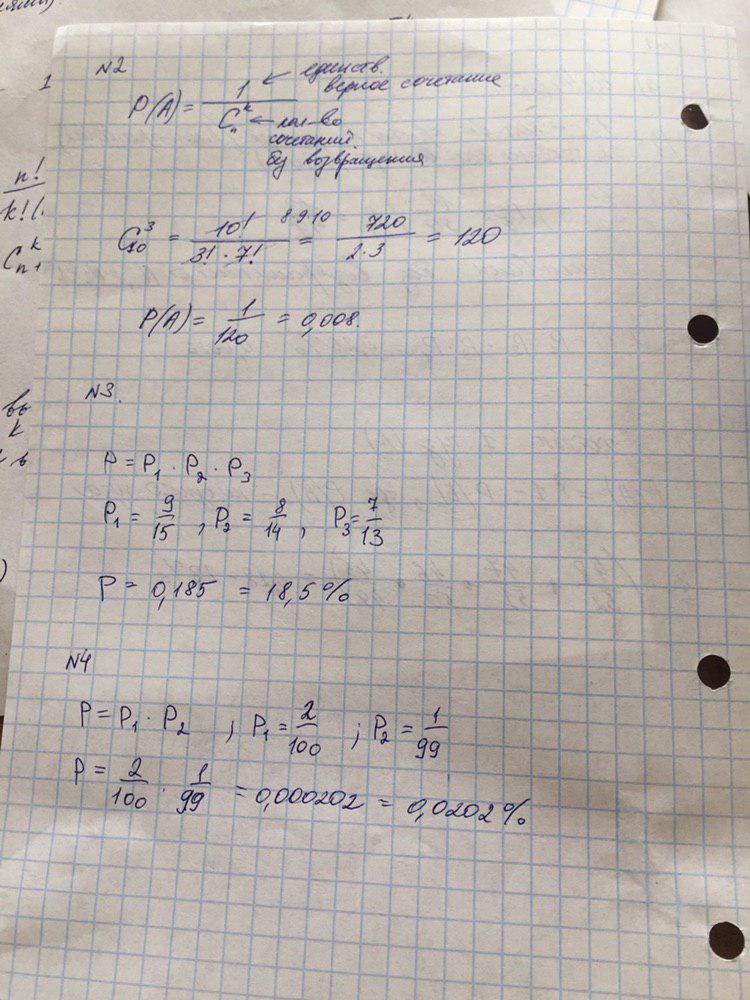 N2
P(A) = 1 / C_n^k ← единств. верное сочетание
← кол-во сочетаний без возвращения
C_10^3 = 10! / 3! · 7! 8 9 10 = 720 / 2·3 = 120
P(A) = 1 / 120 = 0,008.
N3.
P = P1 · P2 · P3
P1 = 9/15 , P2 = 8/14 , P3 = 7/13
P = 0,185 = 18,5 %
N4
P = P1 · P2 ; P1 = 2/100 ; P2 = 1/99
P = 2/100 · 1/99 = 0,000202 = 0,0202 %
1
n!
k!(.
C_n+1^k